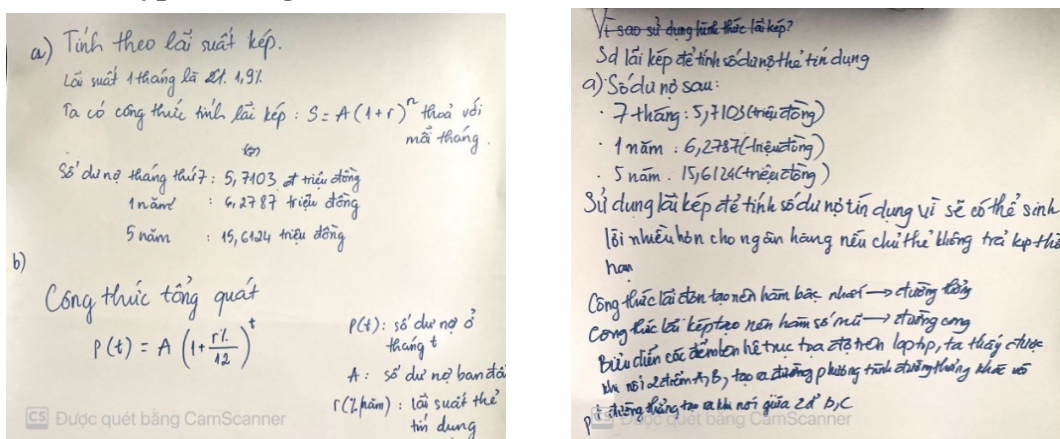 a) Tính theo lãi suất kép.
Lãi suất 1 tháng là 1,9%
Ta có công thức tính lãi kép : S = A (1 + r)ⁿ thoả với
mỗi tháng.
Số dư nợ tháng thứ 7 : 5,7103 triệu đồng
1 năm : 6,2787 triệu đồng
5 năm : 15,6124 triệu đồng
b)
Công thức tổng quát
P(t) = A (1 + r%/12)^t
P(t) : số dư nợ ở
tháng t
A : số dư nợ ban đầ
r (%/năm) : lãi suất thẻ
tín dụng
CS Được quét bằng CamScanner
Vì sao sử dụng hình thức lãi kép?
Sd lãi kép để tính số dư nợ thẻ tín dụng
a) Số dư nợ sau:
· 7 tháng : 5,7103 (triệu đồng)
· 1 năm : 6,2787 (triệu đồng)
· 5 năm : 15,6124 (triệu đồng)
Sử dụng lãi kép để tính số dư nợ tín dụng vì sẽ có thể sinh
lời nhiều hơn cho ngân hàng nếu chủ thẻ không trả kịp thờ
hạn
Công thức lãi đơn tạo nên hàm bậc nhất → đường thẳng
Công thức lãi kép tạo nên hàm số mũ → đường cong
Biểu diễn các điểm lên hệ trục tọa độ trên laptop, ta thấy được
khi nối 2 điểm A, B, tạo ra đường phương trình đường thẳng khác với
pt đường thẳng tạo ra khi nối giữa 2 đ' B, C
CS Được quét bằng CamScanner